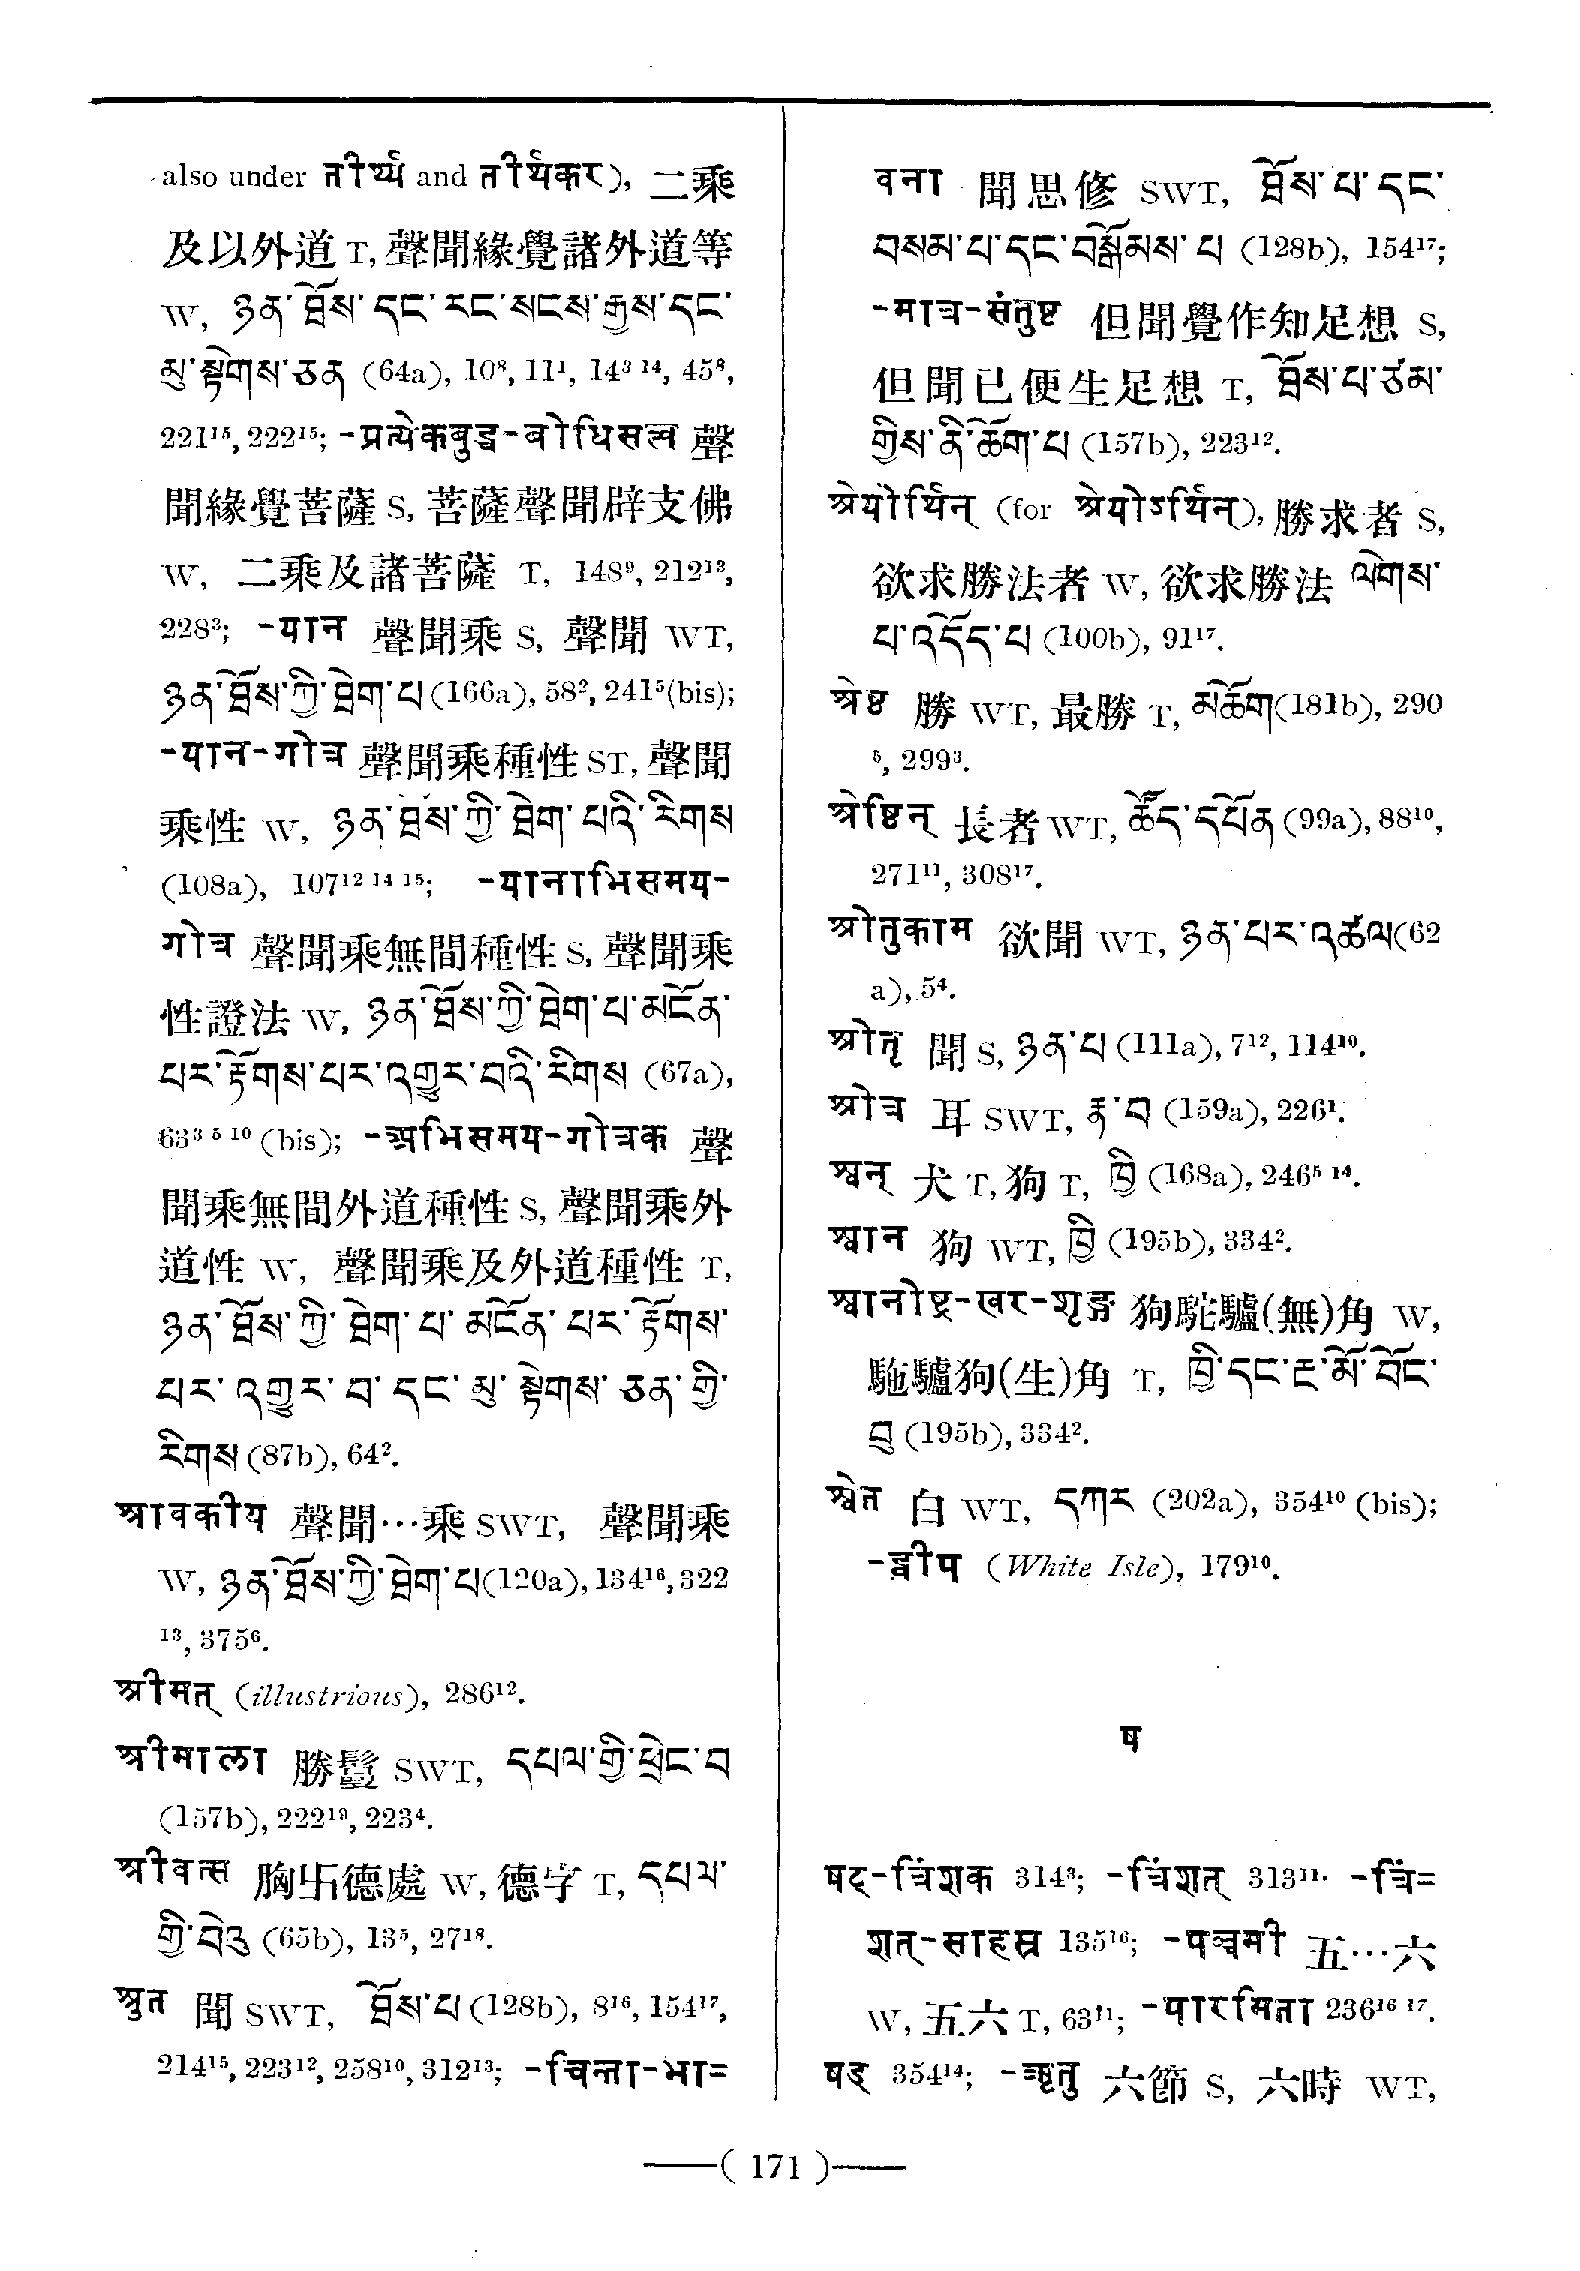 also under तीर्थ्य and तीर्थकर), 二乘
及以外道 T, 聲聞緣覺諸外道等
W, ཉན་ཐོས་དང་རང་སངས་རྒྱས་དང་
མུ་སྟེགས་ཅན (64a), 10⁸, 11¹, 14³ ¹⁴, 45⁸,
221¹⁵, 222¹⁵; -प्रत्येकबुद्ध-बोधिसत्त्व 聲
聞緣覺菩薩 S, 菩薩聲聞辟支佛
W, 二乘及諸菩薩 T, 148⁹, 212¹³,
228³; -यान 聲聞乘 S, 聲聞 WT,
ཉན་ཐོས་ཀྱི་ཐེག་པ (166a), 58², 241⁵(bis);
-यान-गोत्र 聲聞乘種性 ST, 聲聞
乘性 W, ཉན་ཐོས་ཀྱི་ཐེག་པའི་རིགས
(108a), 107¹² ¹⁴ ¹⁵; -यानाभिसमय-
गोत्र 聲聞乘無間種性 S, 聲聞乘
性證法 W, ཉན་ཐོས་ཀྱི་ཐེག་པ་མངོན་
པར་རྟོགས་པར་འགྱུར་བའི་རིགས (67a),
63³ ⁵ ¹⁰ (bis); -अभिसमय-गोत्रक 聲
聞乘無間外道種性 S, 聲聞乘外
道性 W, 聲聞乘及外道種性 T,
ཉན་ཐོས་ཀྱི་ཐེག་པ་མངོན་པར་རྟོགས་
པར་འགྱུར་བ་དང་མུ་སྟེགས་ཅན་གྱི་
རིགས (87b), 64².
श्रावकीय 聲聞…乘 SWT, 聲聞乘
W, ཉན་ཐོས་ཀྱི་ཐེག་པ(120a), 134¹⁶, 322
¹³, 375⁶.
श्रीमत् (illustrious), 286¹².
श्रीमाला 勝鬘 SWT, དཔལ་གྱི་ཕྲེང་བ
(157b), 222¹⁹, 223⁴.
श्रीवत्स 胸卐德處 W, 德字 T, དཔལ་
གྱི་བེའུ (65b), 13⁵, 27¹⁸.
श्रुत 聞 SWT, ཐོས་པ (128b), 8¹⁶, 154¹⁷,
214¹⁵, 223¹², 258¹⁰, 312¹³; -चिन्ता-भा=
वना 聞思修 SWT, ཐོས་པ་དང་
བསམ་པ་དང་བསྒོམས་པ (128b), 154¹⁷;
-मात्र-संतुष्ट 但聞覺作知足想 S,
但聞已便生足想 T, ཐོས་པ་ཙམ་
གྱིས་ནི་ཆོག་པ (157b), 223¹².
श्रेयोर्थिन् (for श्रेयोऽर्थिन्), 勝求者 S,
欲求勝法者 W, 欲求勝法 ལེགས་
པ་འདོད་པ (100b), 91¹⁷.
श्रेष्ठ 勝 WT, 最勝 T, མཆོག(181b), 290
⁵, 299³.
श्रेष्ठिन् 長者 WT, ཚོད་དཔོན (99a), 88¹⁰,
271¹¹, 308¹⁷.
श्रोतुकाम 欲聞 WT, ཉན་པར་འཚལ(62
a), 5⁴.
श्रोतृ 聞 S, ཉན་པ (111a), 7¹², 114¹⁰.
श्रोत्र 耳 SWT, རྣ་བ (159a), 226¹.
श्वन् 犬 T, 狗 T, ཁྱི (168a), 246⁵ ¹⁴.
श्वान 狗 WT, ཁྱི (195b), 334².
श्वानोष्ट्र-खर-शृङ्ग 狗駝驢(無)角 W,
駞驢狗(生)角 T, ཁྱི་དང་རྔ་མོ་བོང་
བུ (195b), 334².
श्वेत 白 WT, དཀར (202a), 354¹⁰ (bis);
-द्वीप (White Isle), 179¹⁰.
ष
षट्-त्रिंशक 314³; -त्रिंशत् 313¹¹· -त्रिं=
शत्-साहस्र 135¹⁶; -पञ्चमी 五…六
W, 五六 T, 63¹¹; -पारमिता 236¹⁶ ¹⁷.
षड् 354¹⁴; -ऋतु 六節 S, 六時 WT,
——( 171 )——